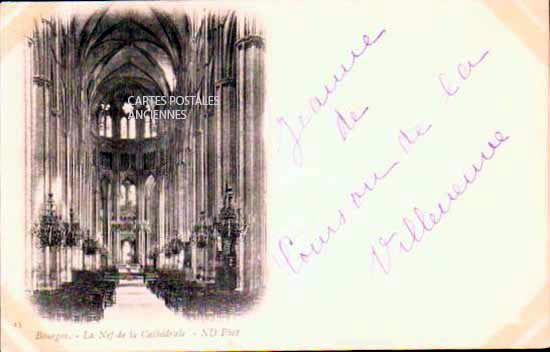 CARTES POSTALES
ANCIENNES
Jeanne
de
Courson de la
Villeneuve
45
Bourges. - La Nef de la Cathédrale - ND Phot